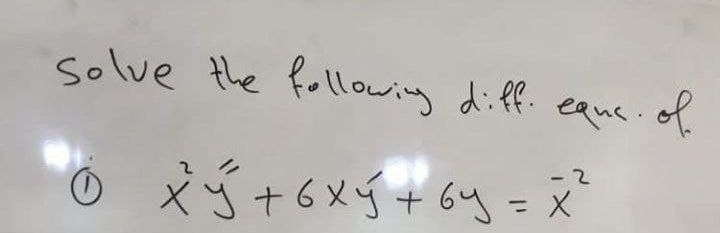 Solve the following diff. equc. of
① x² y'' + 6xy' + 6y = x⁻²